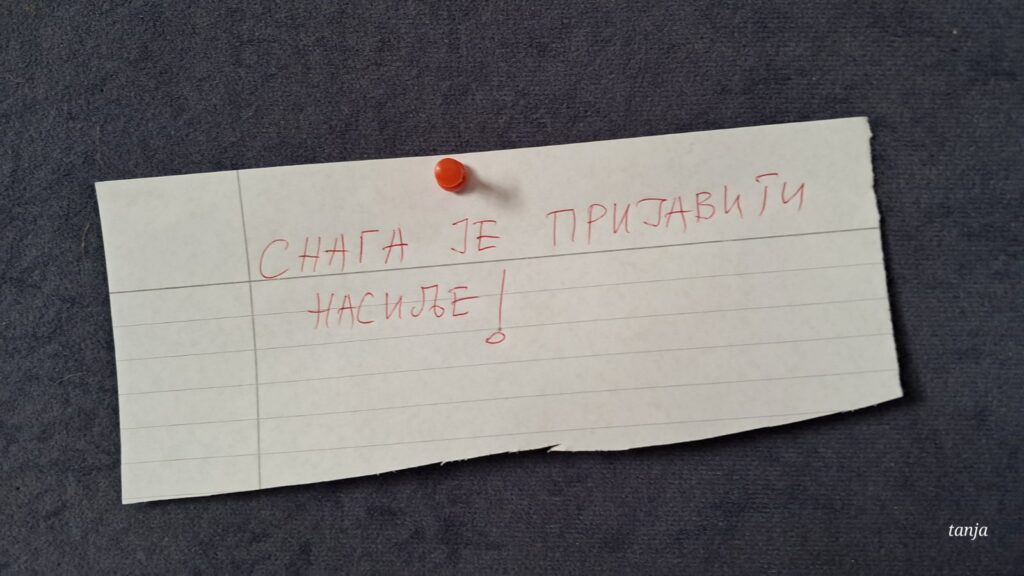 СНАГА ЈЕ ПРИЈАВИТИ
НАСИЉЕ!
tanja